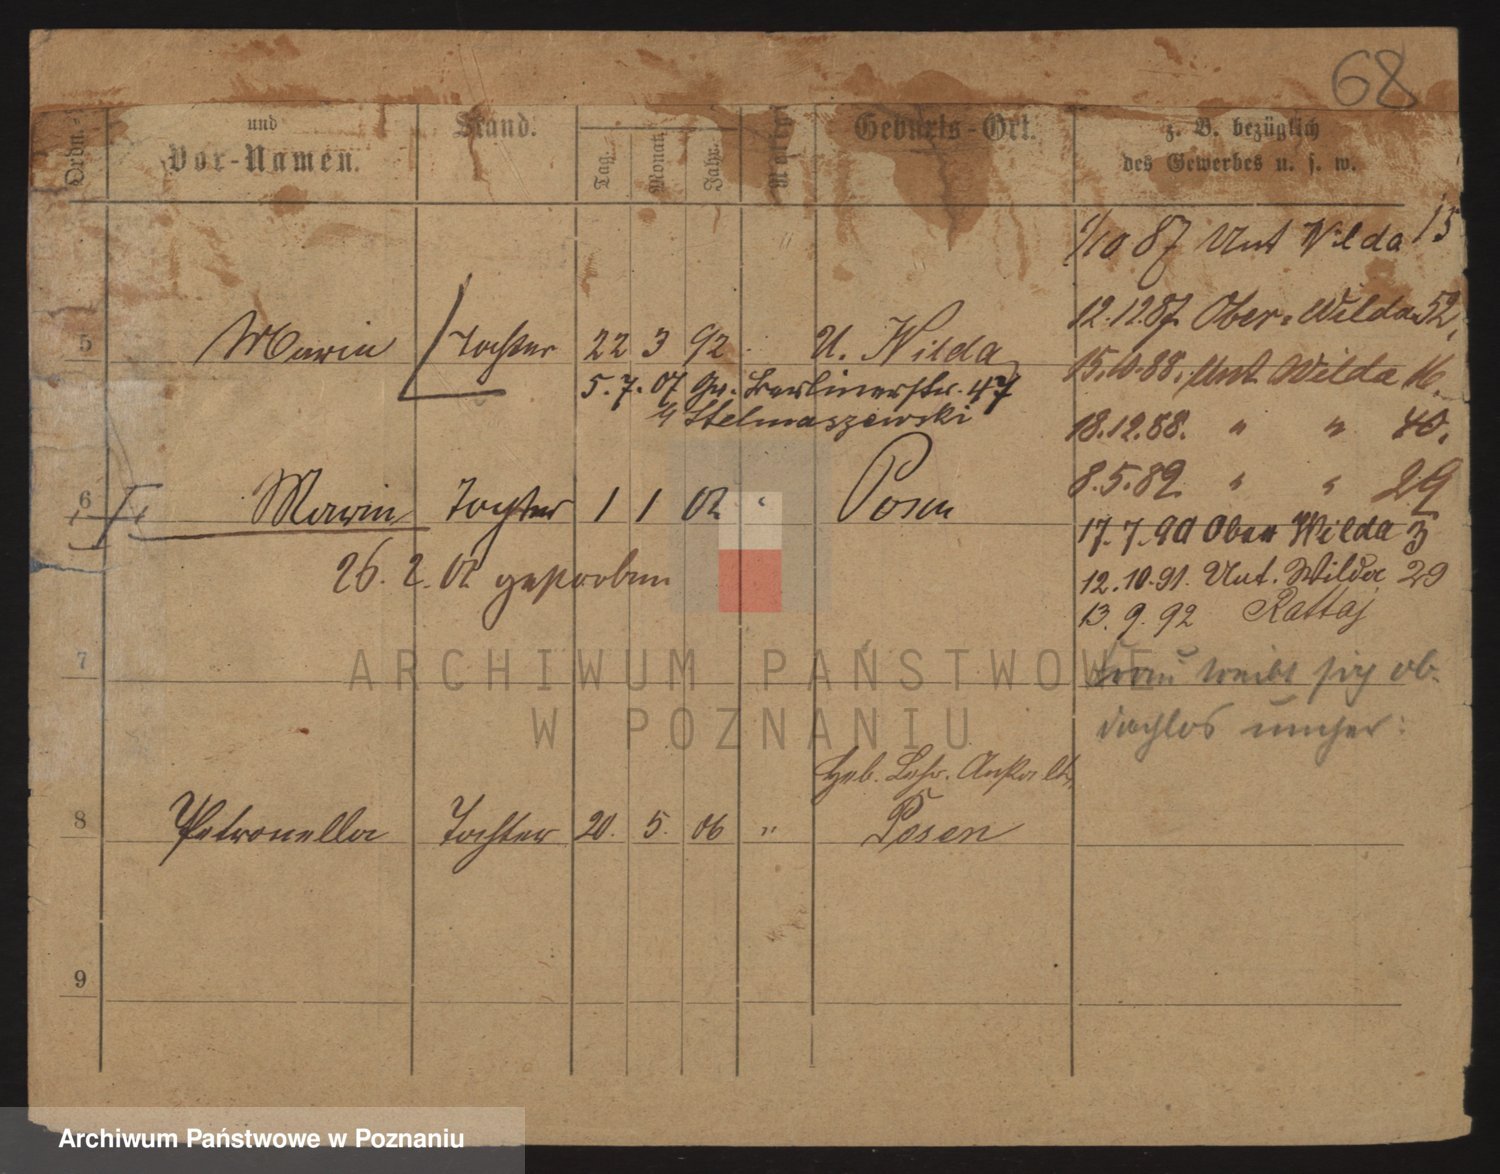 68
Ordn.-
und
Vor-Namen.
Stand.
Tag.
Monat
Jahr.
Religi
Geburts-Ort.
z. B. bezüglich
des Gewerbes u. s. w.
1/10 87 Unt Wilda 15
12.12.87 Ober-Wilda 52,
5 Marie Tochter 22 3 92 U. Wilda
15.10.88. Unt. Wilda 16.
5.7.07 Gr. Berlinerstr. 47
b/ Stelmaszewski
18.12.88. " " 40.
8.5.89. " " 29
6 Marie Tochter 1 1 02 " Posen
17.7.90 Ober Wilda 3
26.2.02 gestorben
12.10.91. Unt. Wilda 29
13.9.92 Rattaj
7
Frau treibt sich ob-
dachlos umher.
Heb. Lehr. Anstalt,
8 Petronella Tochter 20. 5. 06 " Posen
9
ARCHIWUM PAŃSTWOWE
W POZNANIU
Archiwum Państwowe w Poznaniu